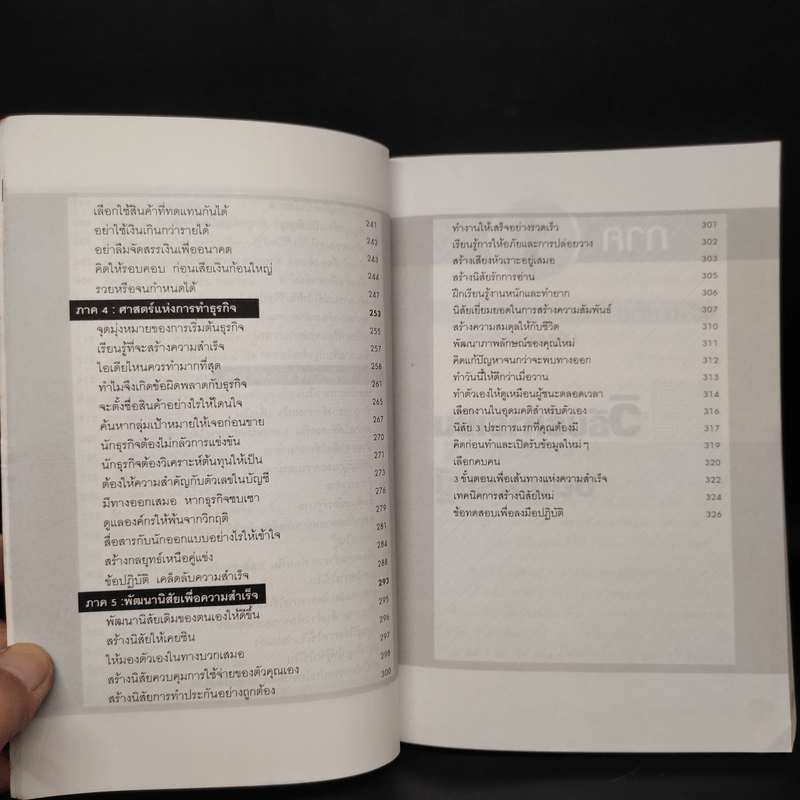 เลือกใช้สินค้าที่ทดแทนกันได้ 241
อย่าใช้เงินเกินกว่ารายได้ 242
อย่าลืมจัดสรรเงินเพื่ออนาคต 243
คิดให้รอบคอบ ก่อนเสียเงินก้อนใหญ่ 244
รวยหรือจนกำหนดได้ 247
ภาค 4 : ศาสตร์แห่งการทำธุรกิจ 253
จุดมุ่งหมายของการเริ่มต้นธุรกิจ 255
เรียนรู้ที่จะสร้างความสำเร็จ 257
ไอเดียไหนควรทำมากที่สุด 258
ทำไมจึงเกิดข้อผิดพลาดกับธุรกิจ 261
จะตั้งชื่อสินค้าอย่างไรให้โดนใจ 265
ค้นหากลุ่มเป้าหมายให้เจอก่อนขาย 267
นักธุรกิจต้องไม่กลัวการแข่งขัน 270
นักธุรกิจต้องวิเคราะห์ต้นทุนให้เป็น 271
ต้องให้ความสำคัญกับตัวเลขในบัญชี 273
มีทางออกเสมอ หากธุรกิจซบเซา 276
ดูแลองค์กรให้พ้นจากวิกฤติ 279
สื่อสารกับนักออกแบบอย่างไรให้เข้าใจ 281
สร้างกลยุทธ์เหนือคู่แข่ง 284
ข้อปฏิบัติ เคล็ดลับความสำเร็จ 288
ภาค 5 :พัฒนานิสัยเพื่อความสำเร็จ 293
พัฒนานิสัยเดิมของตนเองให้ดีขึ้น 295
สร้างนิสัยให้เคยชิน 296
ให้มองตัวเองในทางบวกเสมอ 297
สร้างนิสัยควบคุมการใช้จ่ายของตัวคุณเอง 298
สร้างนิสัยการทำประกันอย่างถูกต้อง 300
ทำงานให้เสร็จอย่างรวดเร็ว 301
เรียนรู้การให้อภัยและการปล่อยวาง 302
สร้างเสียงหัวเราะอยู่เสมอ 303
สร้างนิสัยรักการอ่าน 305
ฝึกเรียนรู้งานหนักและทำยาก 306
นิสัยเยี่ยมยอดในการสร้างความสัมพันธ์ 307
สร้างความสมดุลให้กับชีวิต 310
พัฒนาภาพลักษณ์ของคุณใหม่ 311
คิดแก้ปัญหาจนกว่าจะพบทางออก 312
ทำวันนี้ให้ดีกว่าเมื่อวาน 313
ทำตัวเองให้ดูเหมือนผู้ชนะตลอดเวลา 314
เลือกงานในอุดมคติสำหรับตัวเอง 316
นิสัย 3 ประการแรกที่คุณต้องมี 317
คิดก่อนทำและเปิดรับข้อมูลใหม่ๆ 319
เลือกคบคน 320
3 ขั้นตอนเพื่อเส้นทางแห่งความสำเร็จ 322
เทคนิคการสร้างนิสัยใหม่ 324
ข้อทดสอบเพื่อลงมือปฏิบัติ 326